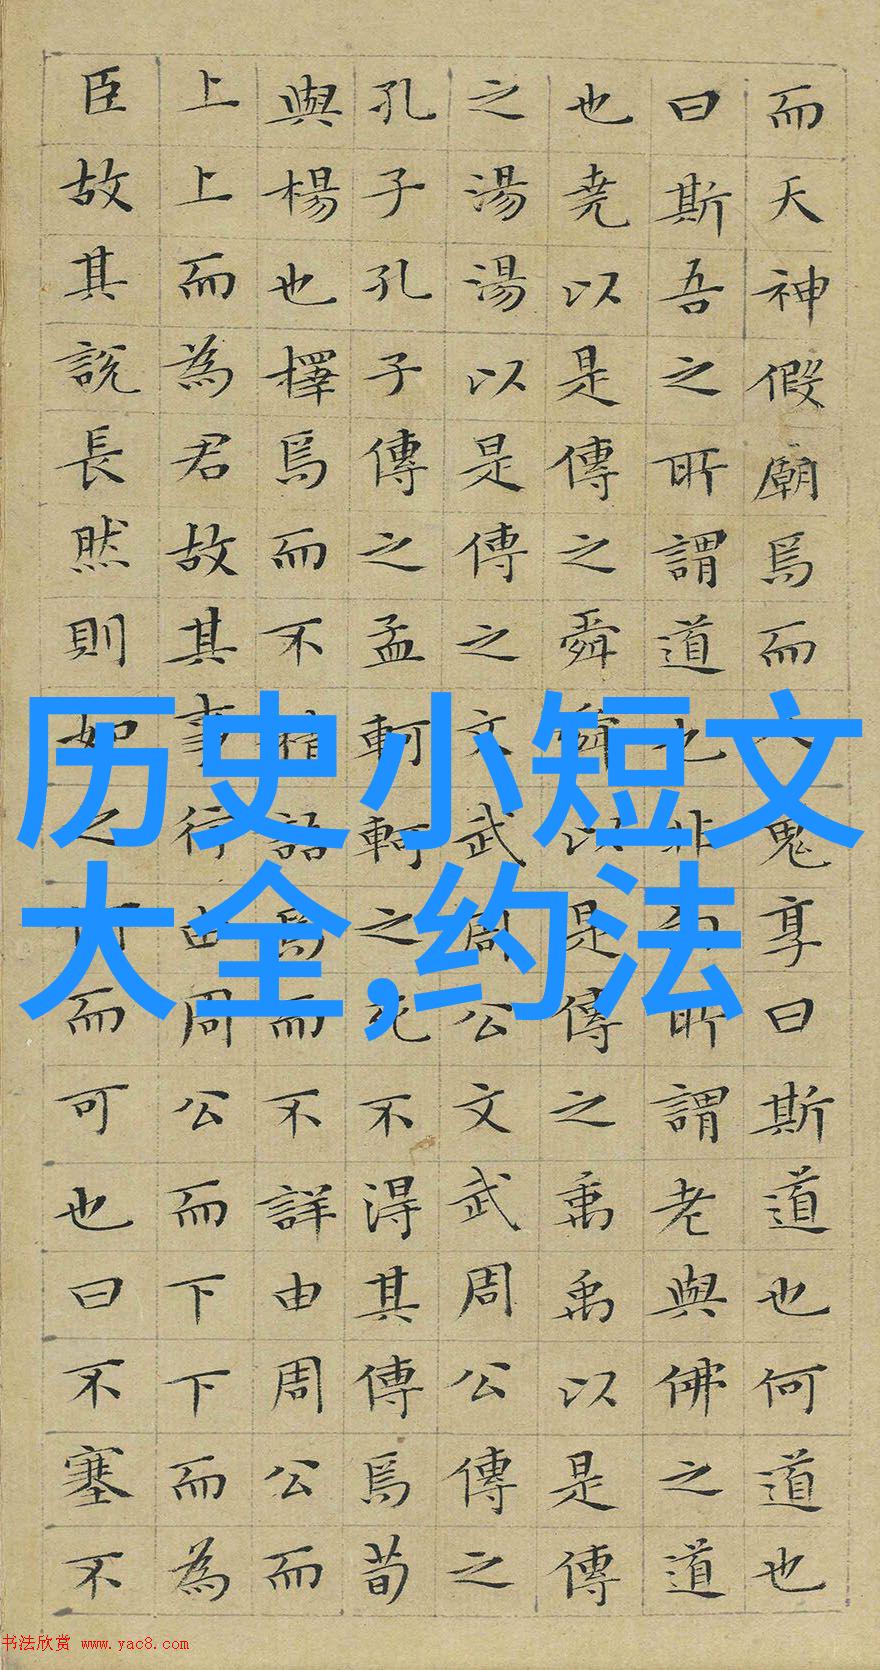 而天神假廟焉而人鬼享曰斯道也何道也
曰斯吾之所謂道也非向所謂老與佛之道
也堯以是傳之舜舜以是傳之禹禹以是傳
之湯湯以是傳之文武周公文武周公傳之
孔子孔子傳之孟軻軻之死不得其傳焉荀
與楊也擇焉而不精語焉而不詳由周公而
上上而為君故其事行由周公而下下而為
臣故其說長然則如之何而可也曰不塞不
历史小短文
大全,约法
书法欣赏 www.yac8.com